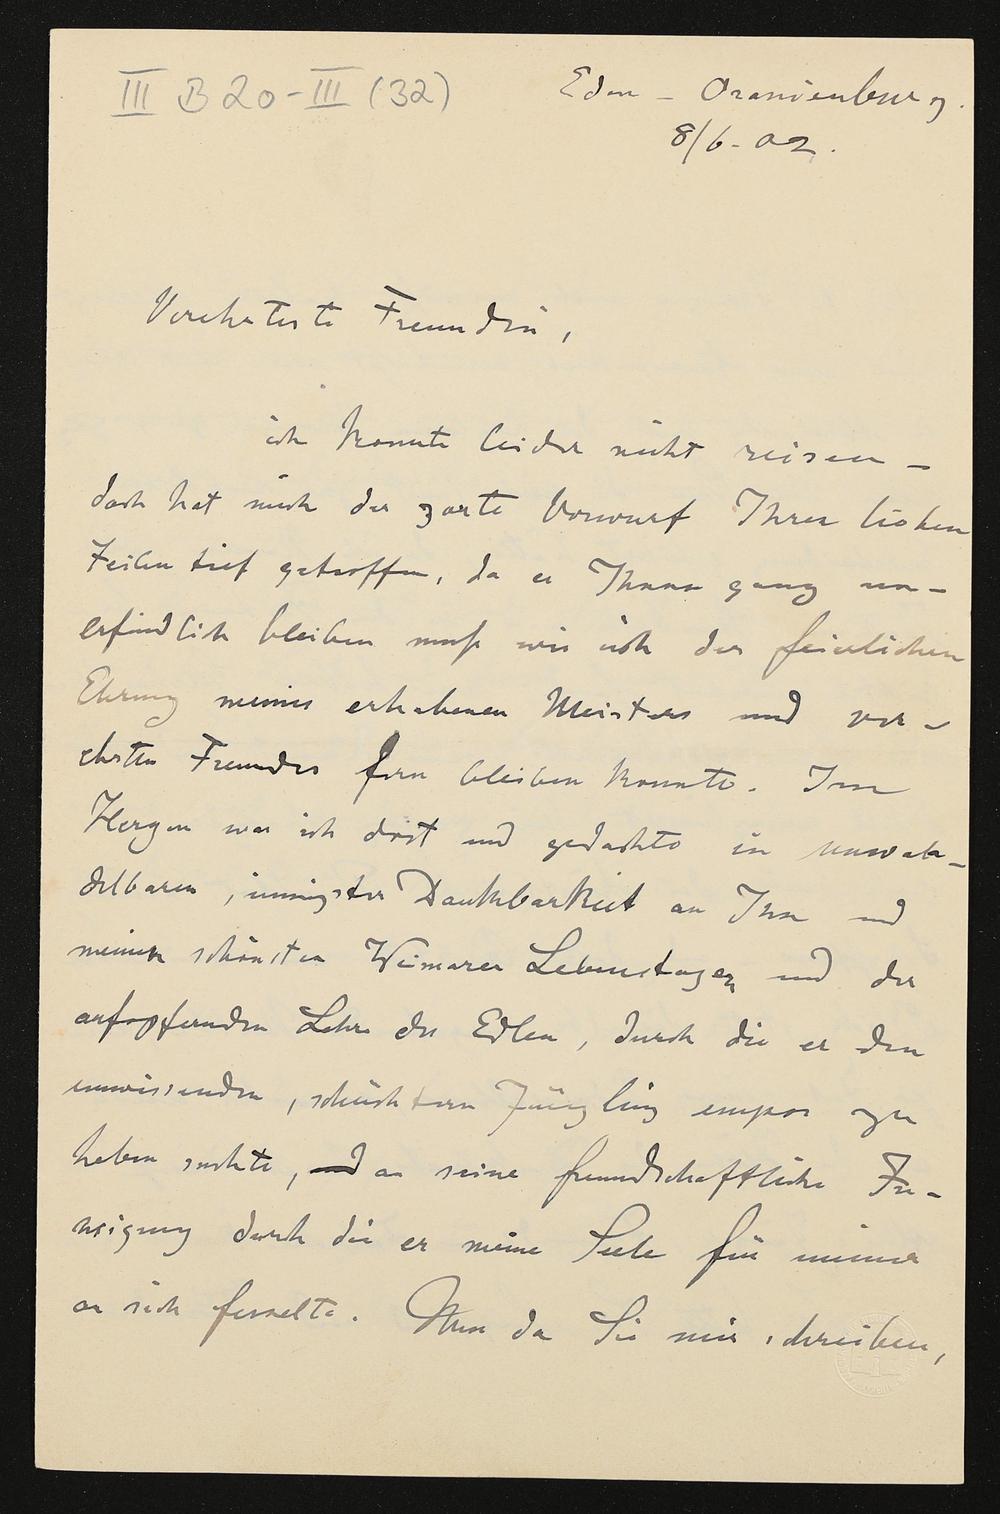 III B 20 - III (32)
Eden - Oranienburg.
8/6 - 02.
Verehrteste Freundin,
ich konnte leider nicht reisen -
doch hat mich der zarte Vorwurf Ihrer lieben
Zeilen tief getroffen, da es Ihnen ganz un-
erfindlich bleiben muß wie ich der feierlichen
Ehrung meines erhabenen Meisters und ver-
ehrten Freundes fern bleiben konnte. Im
Herzen war ich dort und gedachte in unwan-
delbarer, innigster Dankbarkeit an Ihn und
meinen schönsten Weimarer Lebenstagen und der
aufopfernden Lehre des Edlen, durch die er den
unwissenden, schüchtern Jüngling empor zu
heben suchte, an seine freundschaftliche Zu-
neigung durch die er meine Seele für immer
an sich fesselte. Nun da Sie mir schreiben,